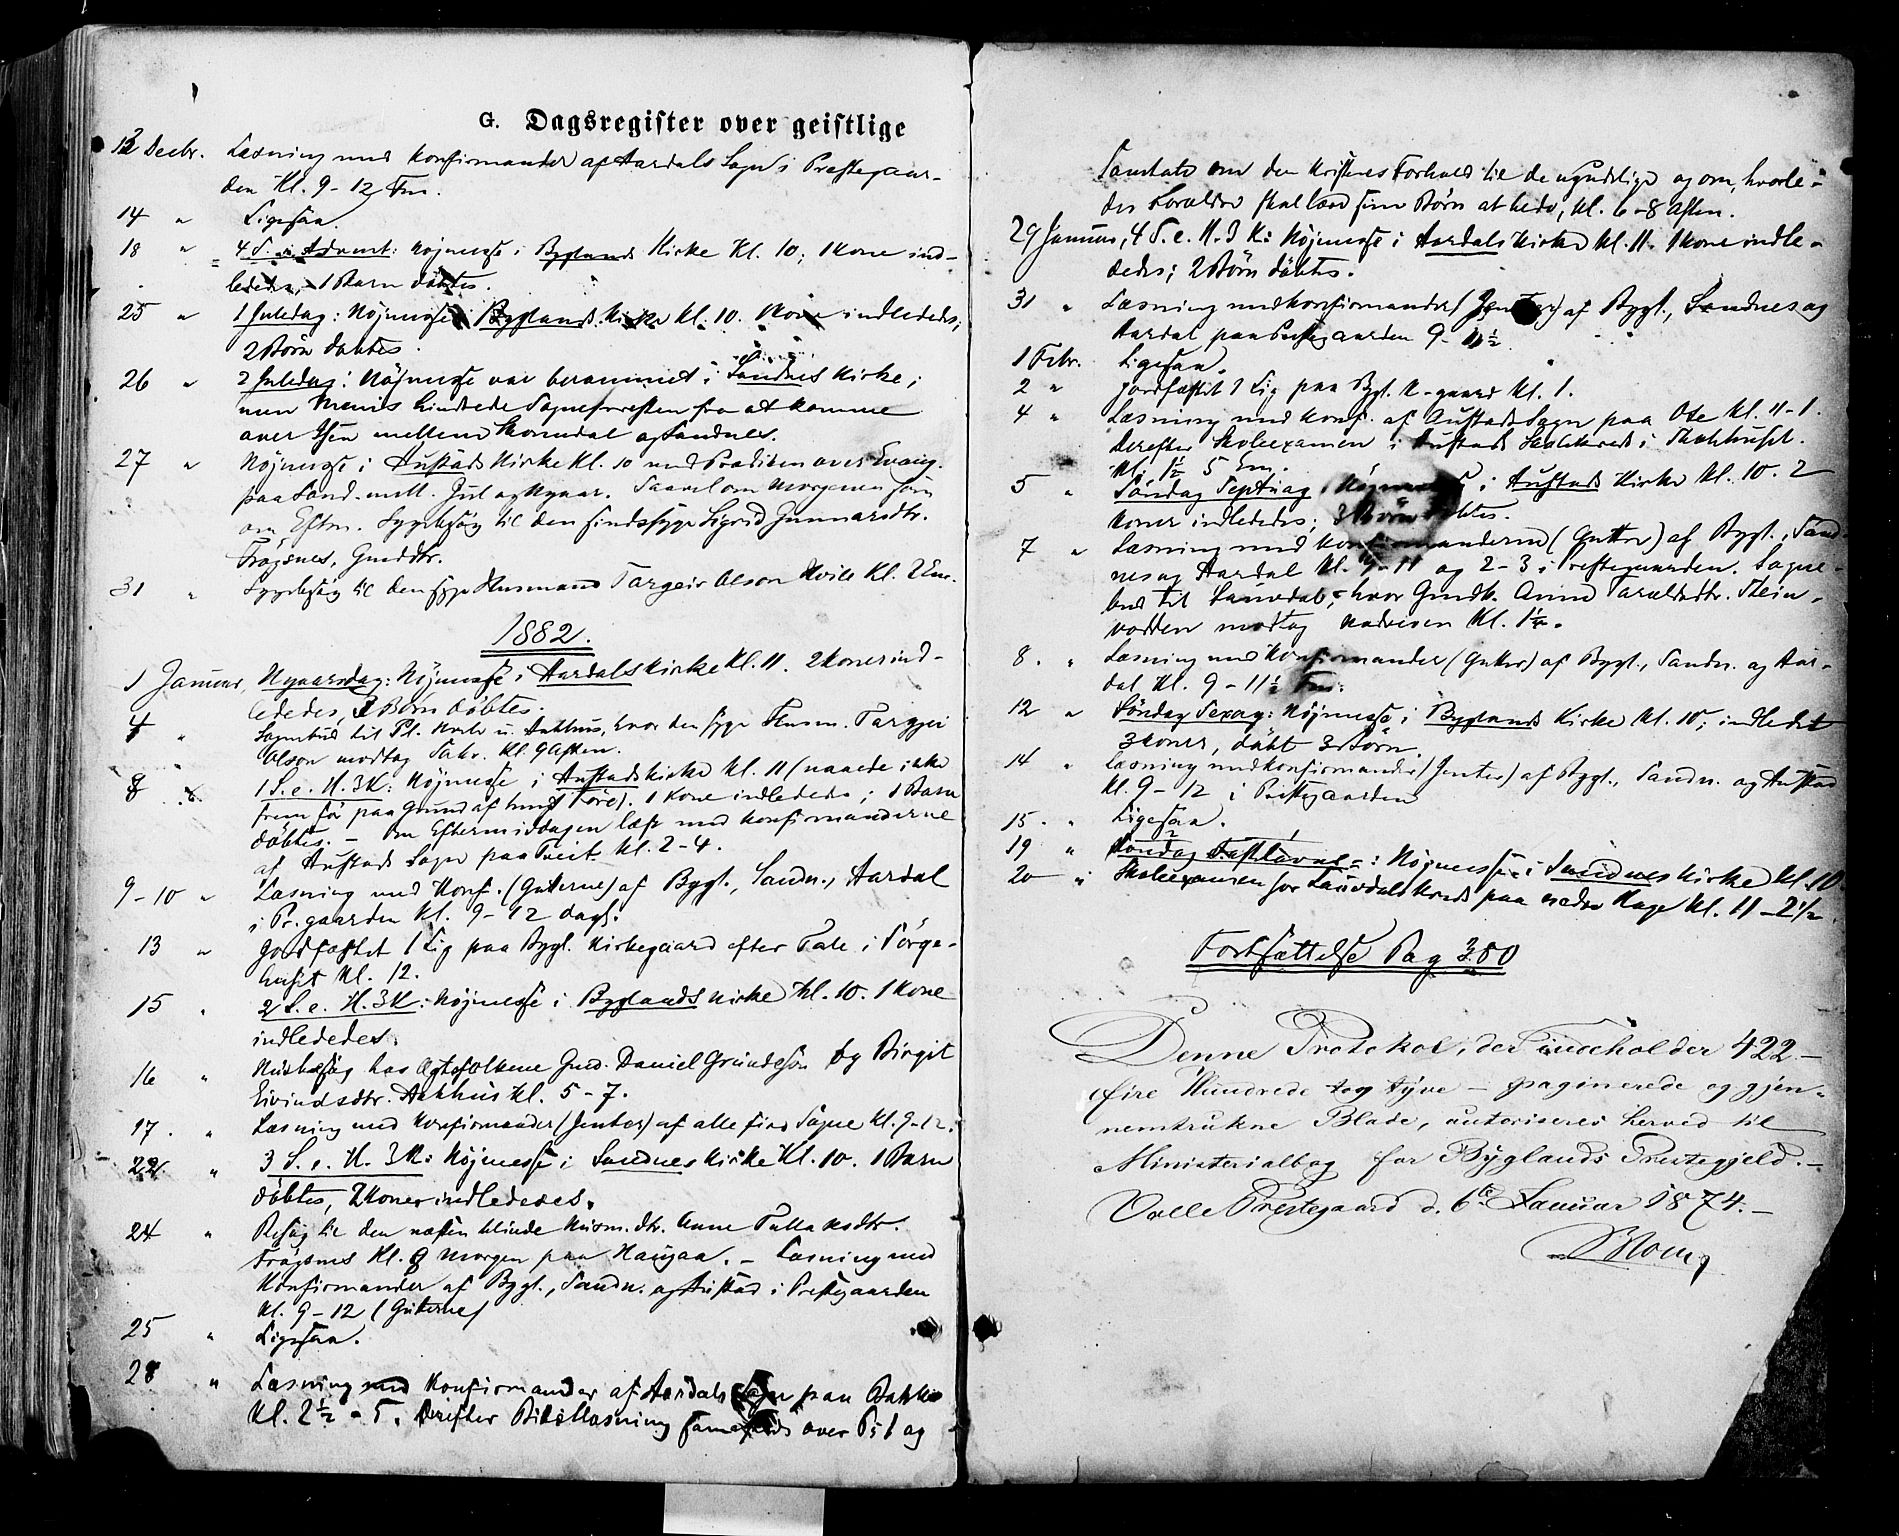 G. Dagsregister over geistlige
12 Decbr. Læsning med Konfirmander af Aardals Sogn i Præstegaar-
den Kl. 9-12 Fm.
14 " Ligesaa.
18 " 4 S. i Advent: Høimesse i Byglands Kirke Kl. 10; 1 Kone ind-
lededes, 1 Barn døbtes.
25 " 1 Juledag: Høimesse i Byglands Kirke Kl. 10. Kone indlededes;
2 Børn døbtes.
26 " 2 Juledag: Høimesse var berammet i Sandnes Kirke;
men Menis hindrede Sognepresten fra at komme
over Isen mellem Skomdal og Sandnes.
27 " Høimesse i Austads Kirke Kl. 10 med Prædiken over Evang.
paa Sønd. mell. Jul og Nyaar. Saavel om Morgenen som
om Eftm. Sygebesøg til den sindssyge Sigrid Gunnarsdtr.
Frøysnes, Gmddtr.
31 " Sygebesøg til den syge Husmand Targeir Olson Hvile Kl. 2 Em.
1882.
1 Januar, Nyaarsdag: Høimesse i Aardals Kirke Kl. 11. 2 Koner ind-
lededes, 3 Børn døbtes.
4 " Sognebud til Pl. Hvile u. Aakhus, hvor den syge Husm. Targjei
Olson modtog Sakr. Kl. 9 Aften.
8 " 1 S. e. H. 3 K: Høimesse i Austads Kirke Kl. 11 (naaede ikke
frem før paa Grund af tungt Føre). 1 Kone indlededes; 1 Barn
døbtes. - Om Eftermiddagen læst med Konfirmanderne
af Austads Sogn paa Tveit Kl. 2-4.
9-10 " Læsning med Konf. (Gutterne) af Bygl., Sandn., Aardal
i Pr.gaarden Kl. 9-12 dagl.
13 " Jordfæstet 1 Lig paa Bygl. Kirkegaard efter Tale i Sørge-
huset Kl. 12.
15 " 2 S. e. H. 3 K: Høimesse i Byglands Kirke Kl. 10. 1 Kone
indlededes.
16 " Husbesøg hos Ægtefolkene Gmd. Daniel Grundeson og Birgit
Eivindsdtr. Aakhus Kl. 5-7.
17. " Læsning med Konfirmander (Jenter) af alle fire Sogne Kl. 9-12.
22. " 3 S. e. H. 3 K: Høimesse i Sandnes Kirke Kl. 10. 1 Barn
døbtes, 2 Koner indlededes.
24 " Besøg til den næsten blinde Husm. dtr. Anne Tallaksdtr.
Frøysnes Kl. 8 Morgen paa Haugaa. - Læsning med
Konfirmander af Bygl., Sandn. og Austad i Prestegaarden
Kl. 9-12 (Gutterne)
25 " Ligesaa.
28 " Læsning med Konfirmander af Aardals Sogn paa Bakke
Kl. 2½ - 5. Derefter Bibellæsning sammesteds over Ps 1 og
Samtale om den Kristnes Forhold til de ugudelige og om, hvorle-
des Forældre skal lære sine Børn at bede, Kl. 6-8 Aften.
29 Januar, 4 S. e. H. 3 K: Høimesse i Aardals Kirke Kl. 11. 1 Kone indle-
dedes; 2 Børn døbtes.
31 " Læsning med Konfirmander (Jenter) af Bygl., Sandnes og
Aardal paa Prestegaarden 9-11½
1 Febr. Ligesaa.
2 " Jordfæstet 1 Lig paa Bygl. K-gaard Kl. 1.
4 " Læsning med Konf. af Austads Sogn paa Ose Kl. 11-1.
Derefter Skoleexamen i Austads Skolekreds i Skolehuset.
Kl. 1½ 5 Em.
5 " Søndag Septuag: Høimesse i Austads Kirke Kl. 10. 2
Koner indlededes; 3 Børn døbtes.
7 " Læsning med Konfirmanderne (Gutter) af Bygl., Sand-
nes og Aardal Kl. 9-11 og 2-3 i Prestegaarden. Sogne-
bud til Lauvdal, hvor Gmdk. Anne Taraldsdtr. Stein-
vodden modtog Nadveren Kl. 1¼.
8. " Læsning med Konfirmander (Gutter) af Bygl., Sandn. og Aar-
dal Kl. 9-11½ Fm.
12 " Søndag Sexag: Høimesse i Byglands Kirke Kl. 10; indledet
3 Koner, døbt 3 Børn.
14 " Læsning med Konfirmander (Jenter) af Bygl., Sandn. og Austad
Kl. 9-12 i Prestegaarden
15. " Ligesaa.
19 " Søndag Fastelavns: Høimesse i Sandnes Kirke Kl. 10
20 " Skoleexamen for Lauvdals Kreds paa nedre Hage Kl. 11-2½.
Fortsættelse Pag 380
Denne Protokol, der indeholder 422 -
fire Hundrede to og tyve - paginerede og gjen-
nemtrukne Blade, autoriseres herved til
Ministerialbog for Byglands Prestegjeld. -
Valle Prestegaard d. 6te Januar 1874. -
Blom